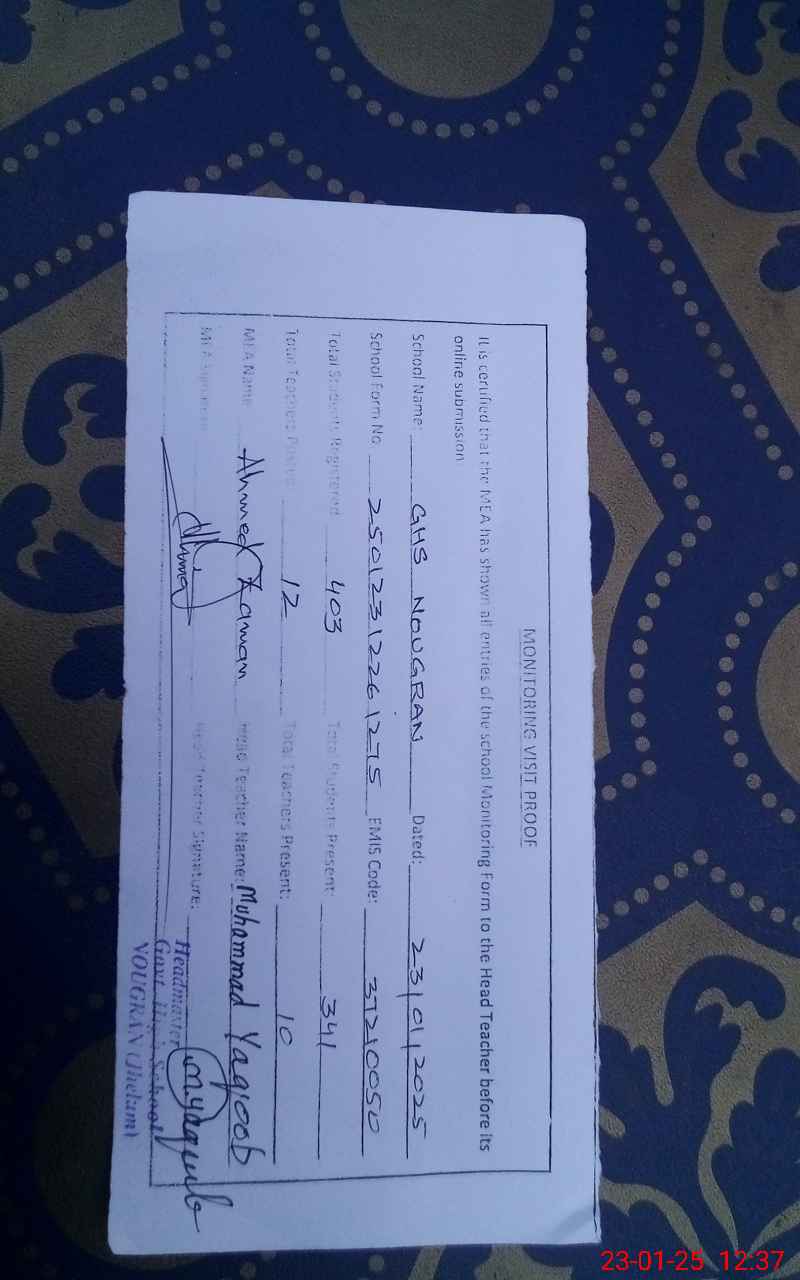 MONITORING VISIT PROOF
It is certified that the MEA has shown all entries of the school Monitoring Form to the Head Teacher before its
online submission
School Name: GHS NOUGRAN Dated: 23/01/2025
School Form No. 2501231226 1275 EMIS Code: 37210050
Total Students Registered 403 Total Students Present: 341
Total Teachers Posted: 12 Total Teachers Present: 10
MEA Name Ahmed Zaman Head Teacher Name: Muhammad Yaqoob
MEA Signature Head Teacher Signature: m.yaqoob
Headmaster
Govt. High School
NOUGRAN (Jhelum)
23-01-25 12:37